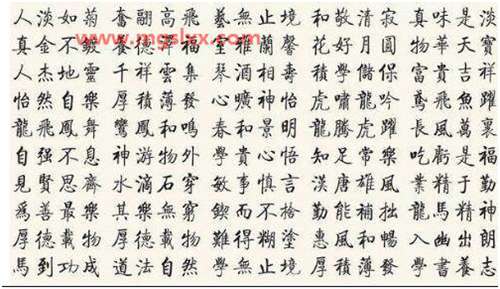 www.mgslxx.com
人淡如菊 奮翮高飛 藝無止境 和敬清寂 真味是淡
真金不鍍 養德 福 室雅蘭馨 花好月圓 物華天寶
人杰地靈 千祥雲集 琴 壽 學儲 富貴吉祥
怡然自樂 厚積薄發 心曠神怡 虎嘯龍吟 鳶飛魚躍
龍飛鳳舞 鸞鳳和鳴 春和景明 龍騰虎躍 長風萬裏
自强不息 神游物外 學貴心悟 知足常樂 吃虧是福
見賢思齊 水滴石穿 敏事慎言 漢唐雄風 業精于勤
爲善最樂 其樂無窮 鍥而不捨 勤能補拙 龍馬精神
厚德載物 厚德載物 難得糊塗 惠風和暢 入幽出朗
馬到功成 道法自然 學無止境 厚積薄發 學書養志